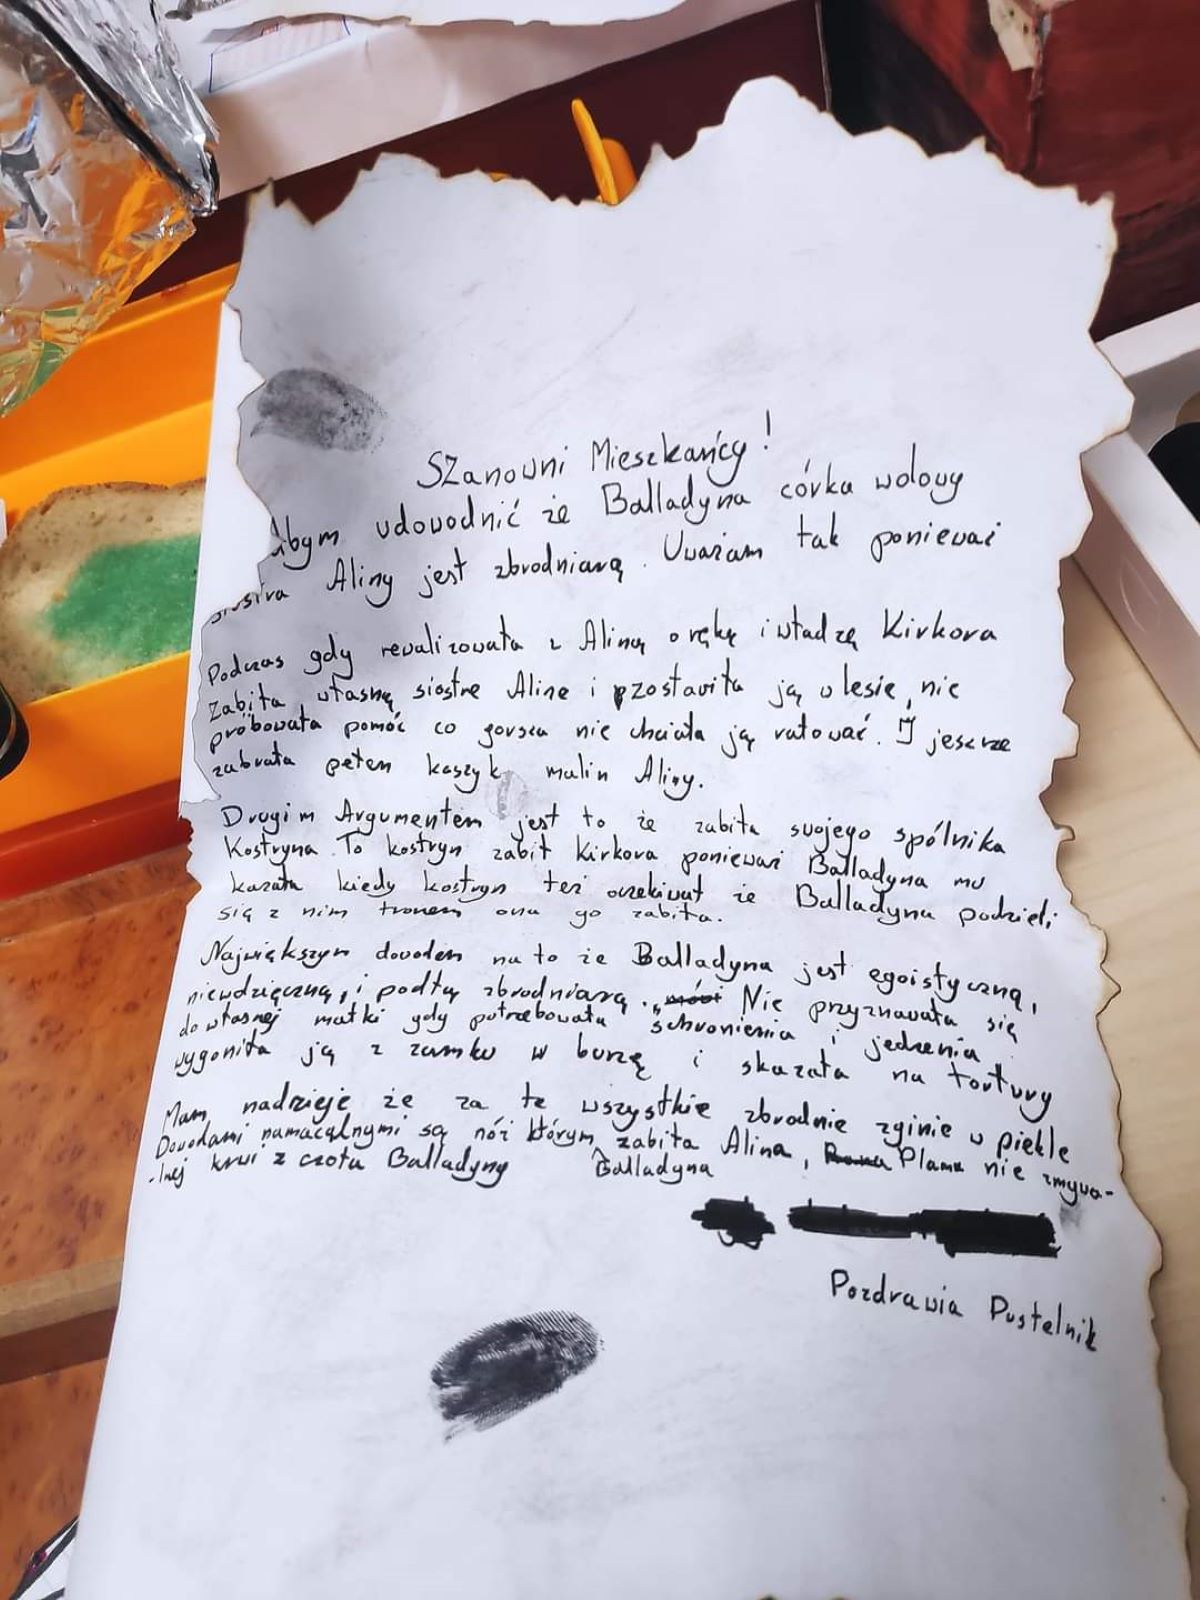 Szanowni Mieszkańcy!
Abym udowodnić że Balladyna córka wdowy
siostra Aliny jest zbrodniarą. Uważam tak ponieważ
Podczas gdy rewalizowała z Aliną o rękę i władzę Kirkora
zabiła własną siostre Aline i pzostawiła ją w lesie, nie
próbowała pomóc co gorsza nie chciała ją ratować. I jeszcze
zabrała pełen koszyk malin Aliny.
Drugim Argumentem jest to że zabiła swojego spólnika
Kostryna. To kostryn zabił Kirkora ponieważ Balladyna mu
kazała kiedy kostryn też oczekiwał że Balladyna podzieli
się z nim tronem ona go zabiła.
Największym dowodem na to że Balladyna jest egoistyczną,
niewdzięczną, i podłą zbrodniarą. Nie przyznawała się
do własnej matki gdy potrzebowała schronienia i jedzenia
wygoniła ją z zamku w burzę i skazała na tortury
Mam nadzieje że za te wszystkie zbrodnie zginie w piekle
Dowodami namacalnymi są nóż którym zabiła Alina, Plama nie zmywa-
-lnej krwi z czoła Balladyny Balladyna
Pozdrawia Pustelnik